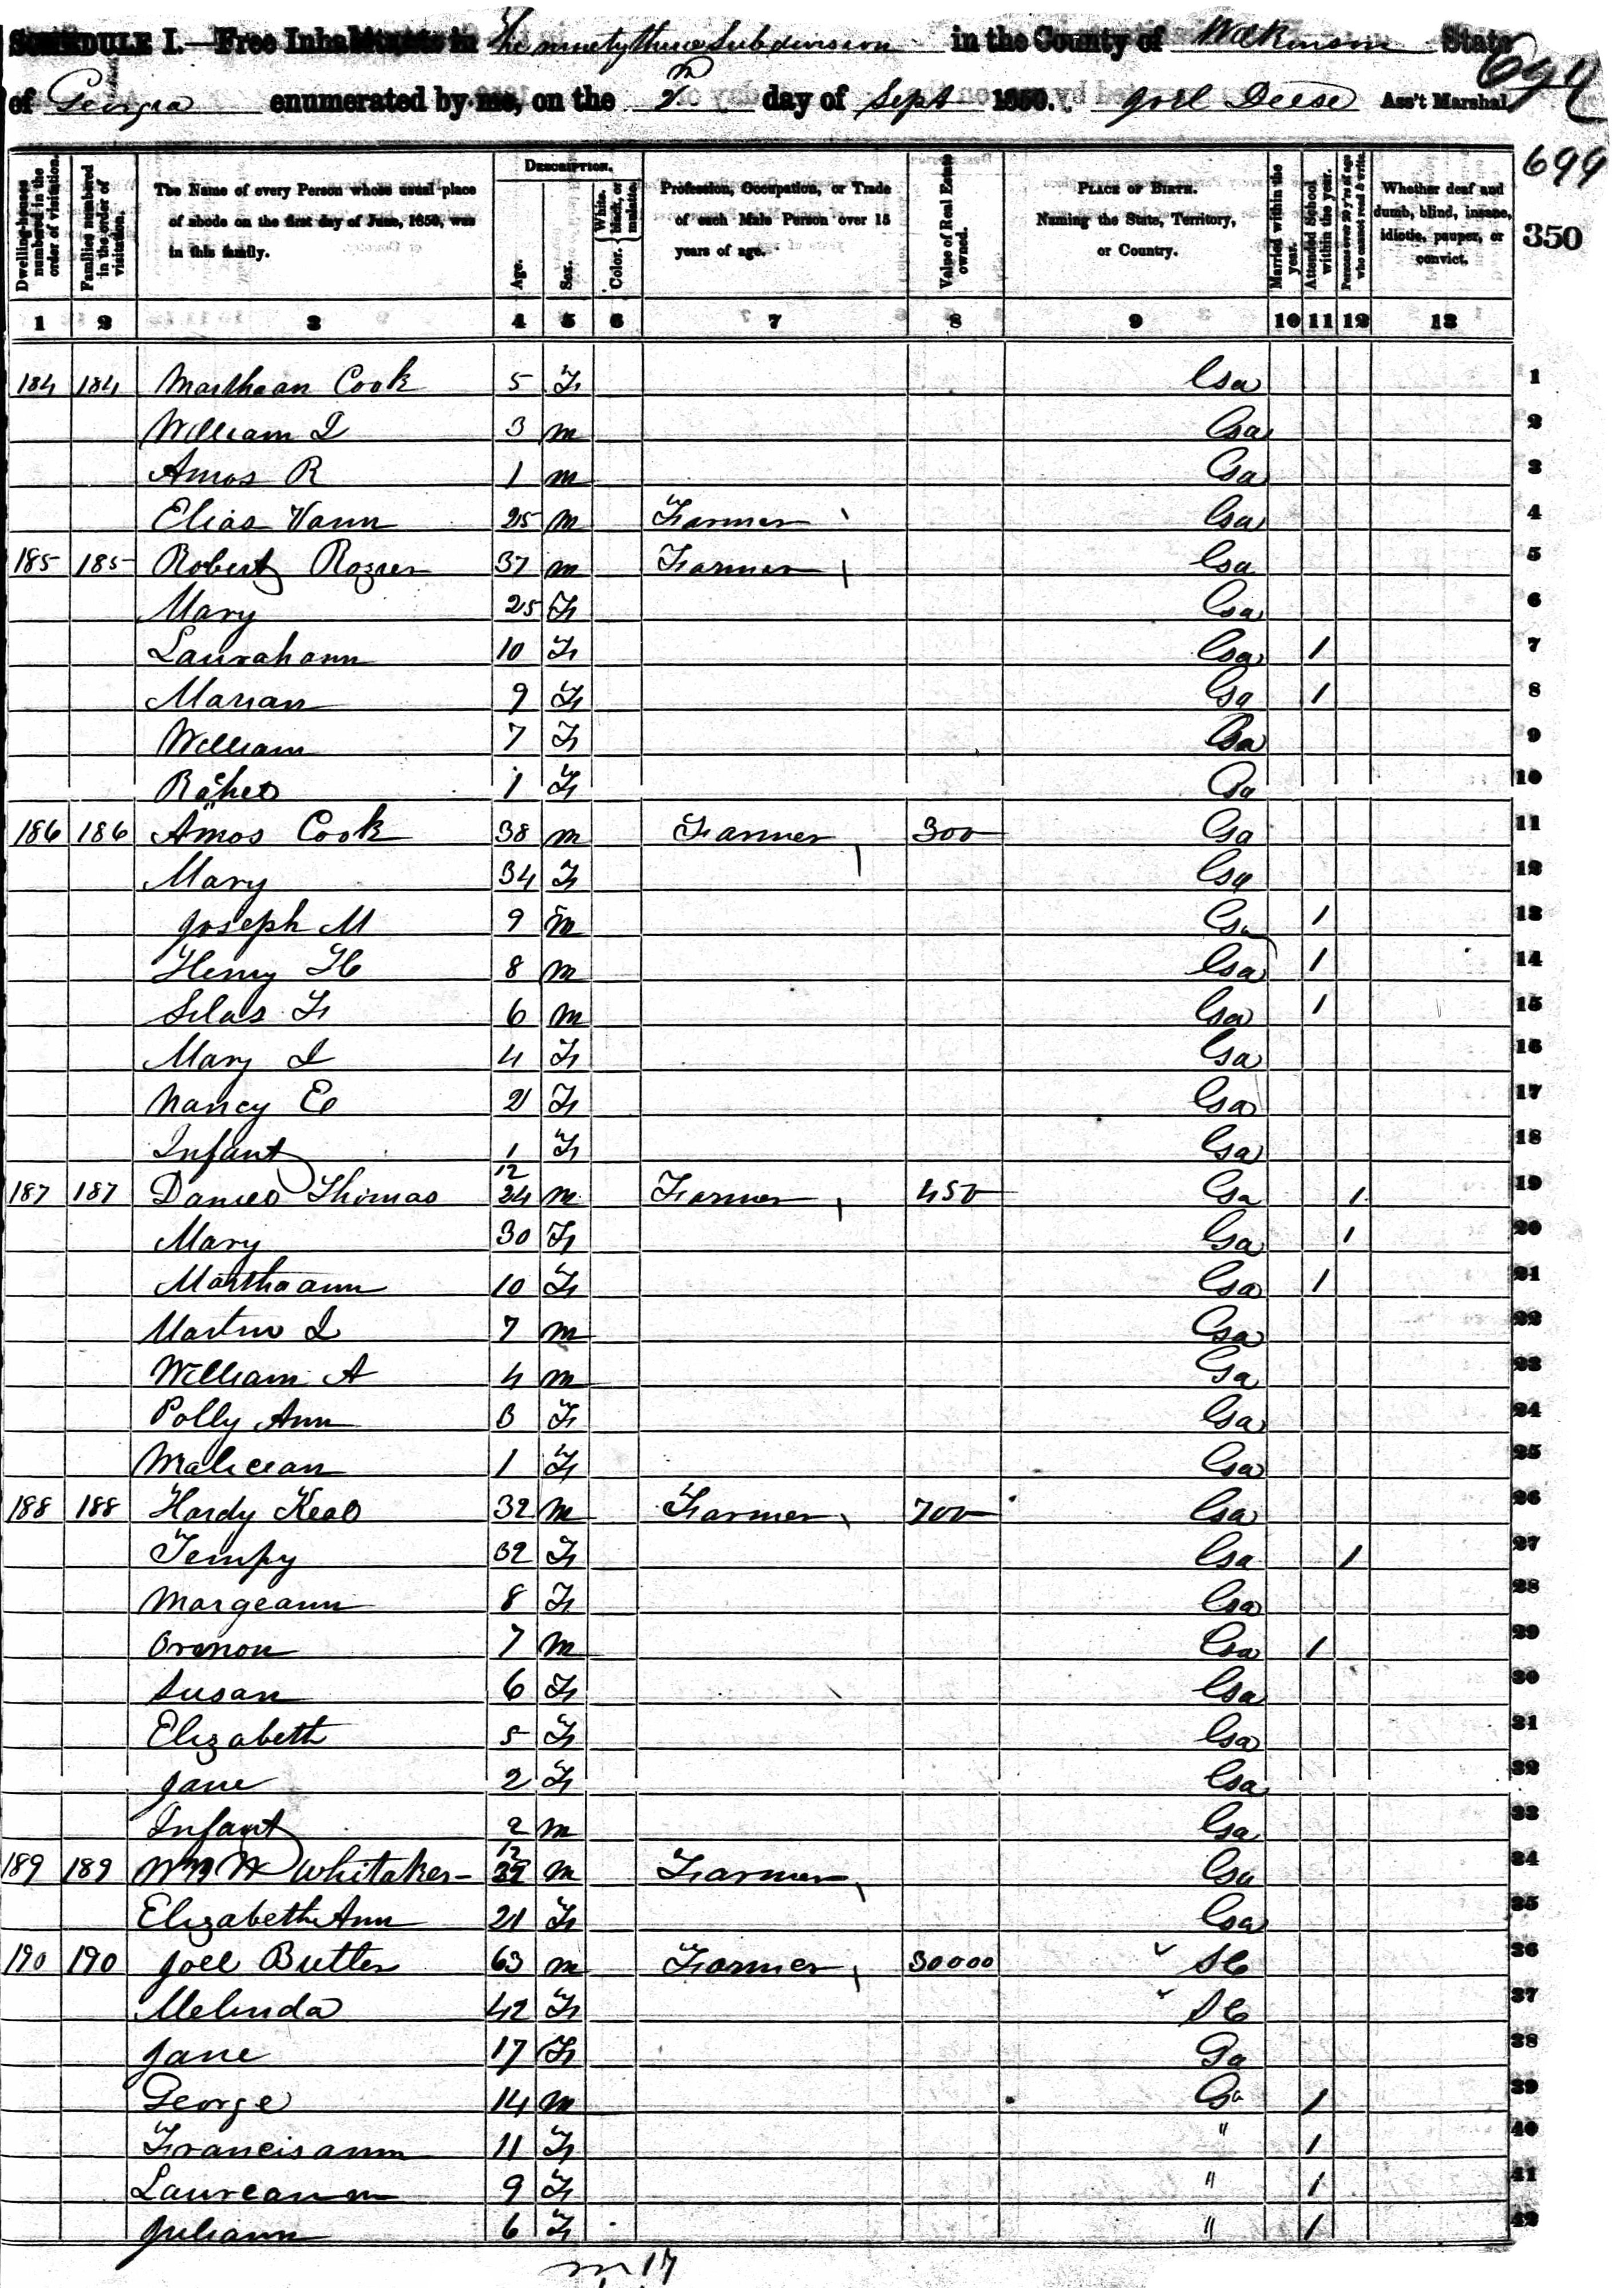 SCHEDULE I.—Free Inhabitants in The ninety three Subdivision in the County of Wilkinson State
of Georgia enumerated by me, on the 2n day of Sept 1850. Joel Deese Ass't Marshal.
699
350
Dwelling-houses numbered in the order of visitation.
Families numbered in the order of visitation.
The Name of every Person whose usual place of abode on the first day of June, 1850, was in this family.
DESCRIPTION.
Age.
Sex.
Color. { White, black, or mulatto.
Profession, Occupation, or Trade of each Male Person over 15 years of age.
Value of Real Estate owned.
PLACE OF BIRTH. Naming the State, Territory, or Country.
Married within the year.
Attended School within the year.
Persons over 20 y'rs of age who cannot read & write.
Whether deaf and dumb, blind, insane, idiotic, pauper, or convict.
1 2 3 4 5 6 7 8 9 10 11 12 13
184 184 Marthaan Cook 5 F Ga 1
William I 3 m Ga 2
Amos R 1 m Ga 3
Elias Vann 25 m Farmer Ga 4
185 185 Robert Rozier 37 m Farmer Ga 5
Mary 25 F Ga 6
Laurahann 10 F Ga 1 7
Marian 9 F Ga 1 8
William 7 F Ga 9
Rachel 1 F Ga 10
186 186 Amos Cook 38 m Farmer 300 Ga 11
Mary 34 F Ga 12
Joseph M 9 m Ga 1 13
Henry H 8 m Ga 1 14
Silas F 6 m Ga 1 15
Mary I 4 F Ga 16
Nancy E 2 F Ga 17
Infant 1/12 F Ga 18
187 187 Daniel Thomas 24 m Farmer 450 Ga 1 19
Mary 30 F Ga 1 20
Marthaann 10 F Ga 1 21
Martin I 7 m Ga 22
William A 4 m Ga 23
Polly Ann 3 F Ga 24
Malician 1 F Ga 25
188 188 Hardy Keal 32 m Farmer 700 Ga 26
Tempy 32 F Ga 1 27
Margeann 8 F Ga 28
Oremon 7 m Ga 1 29
Susan 6 F Ga 30
Elizabeth 5 F Ga 31
Jane 2 F Ga 32
Infant 2/12 m Ga 33
189 189 Wm W Whitaker 32 m Farmer Ga 34
Elizabeth Ann 21 F Ga 35
190 190 Joel Butler 63 m Farmer 30000 SC 36
Melinda 42 F SC 37
Jane 17 F Ga 38
George 14 m Ga 1 39
Francisann 11 F " 1 40
Laureann 9 F " 1 41
Juliann 6 F " 1 42
m 17